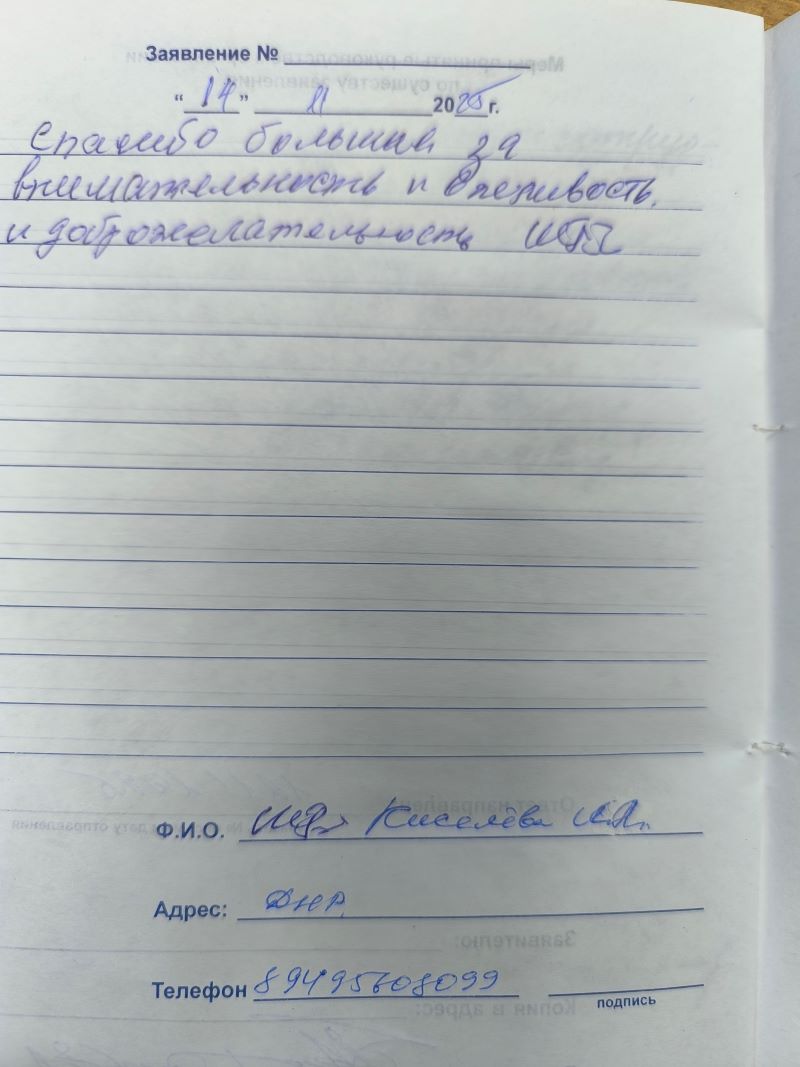 Заявление №
"14" 11 2025г.
Спасибо большая за
внимательность и
и доброжелательность
Ф.И.О. Киселёва
Адрес: ДНР.
Телефон 89495608099
подпись